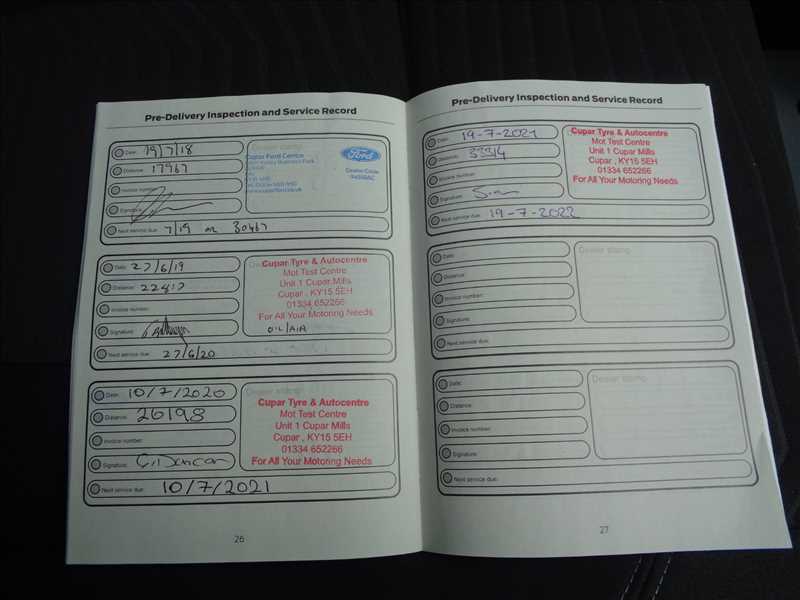 Pre-Delivery Inspection and Service Record
Date: 19/7/18
Distance: 17967
Invoice number:
Signature:
Next service due: 7/19 or 30467
Cupar Ford Centre
Ford
Dealer Code
Date: 27/6/19
Distance:
Invoice number:
Signature:
Next service due: 27/6/20
Cupar Tyre & Autocentre
Mot Test Centre
Unit 1 Cupar Mills
Cupar , KY15 5EH
01334 652266
For All Your Motoring Needs
OIL/AIR
Date: 10/7/2020
Distance: 26198
Invoice number:
Signature: G Duncan
Next service due: 10/7/2021
Dealer stamp
Cupar Tyre & Autocentre
Mot Test Centre
Unit 1 Cupar Mills
Cupar , KY15 5EH
01334 652266
For All Your Motoring Needs
26
Pre-Delivery Inspection and Service Record
Date: 19-7-2021
Distance: 33314
Invoice Number:
Signature:
Next service due: 19-7-2022
Cupar Tyre & Autocentre
Mot Test Centre
Unit 1 Cupar Mills
Cupar , KY15 5EH
01334 652266
For All Your Motoring Needs
Date:
Distance:
Invoice number:
Signature:
Next service due:
Dealer stamp
Date:
Distance:
Invoice number:
Signature:
Next service due:
Dealer stamp
27